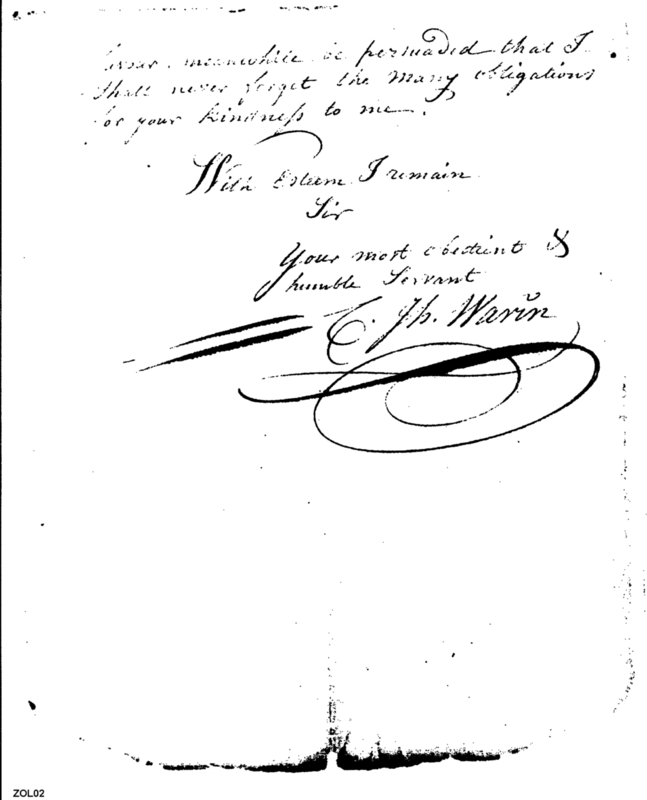 meanwhile be persuaded that I
shall never forget the many obligations
for your kindness to me.
With Esteem I remain
Sir
Your most obedient &
humble Servant
Jh. Warin
ZOL02